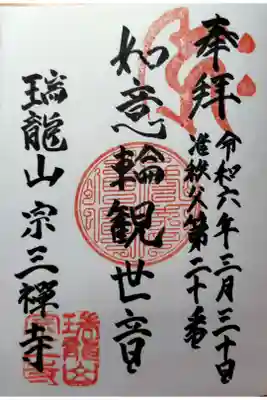 奉拝
令和六年三月三十日
准秩父第二十番
如意輪観世音
瑞龍山宗三禅寺